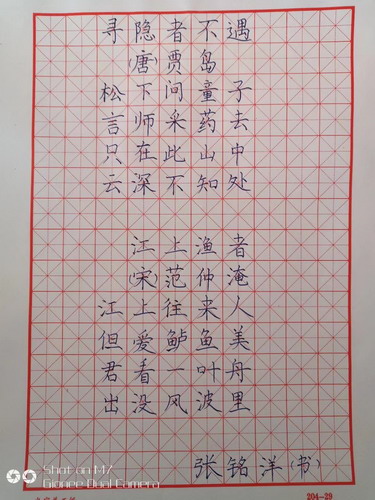 寻隐者不遇
(唐)贾岛
松下问童子
言师采药去
只在此山中
云深不知处
江上渔者
(宋)范仲淹
江上往来人
但爱鲈鱼美
君看一叶舟
出没风波里
张铭洋(书)
204-29
Shot on M7
Gionee Dual Camera